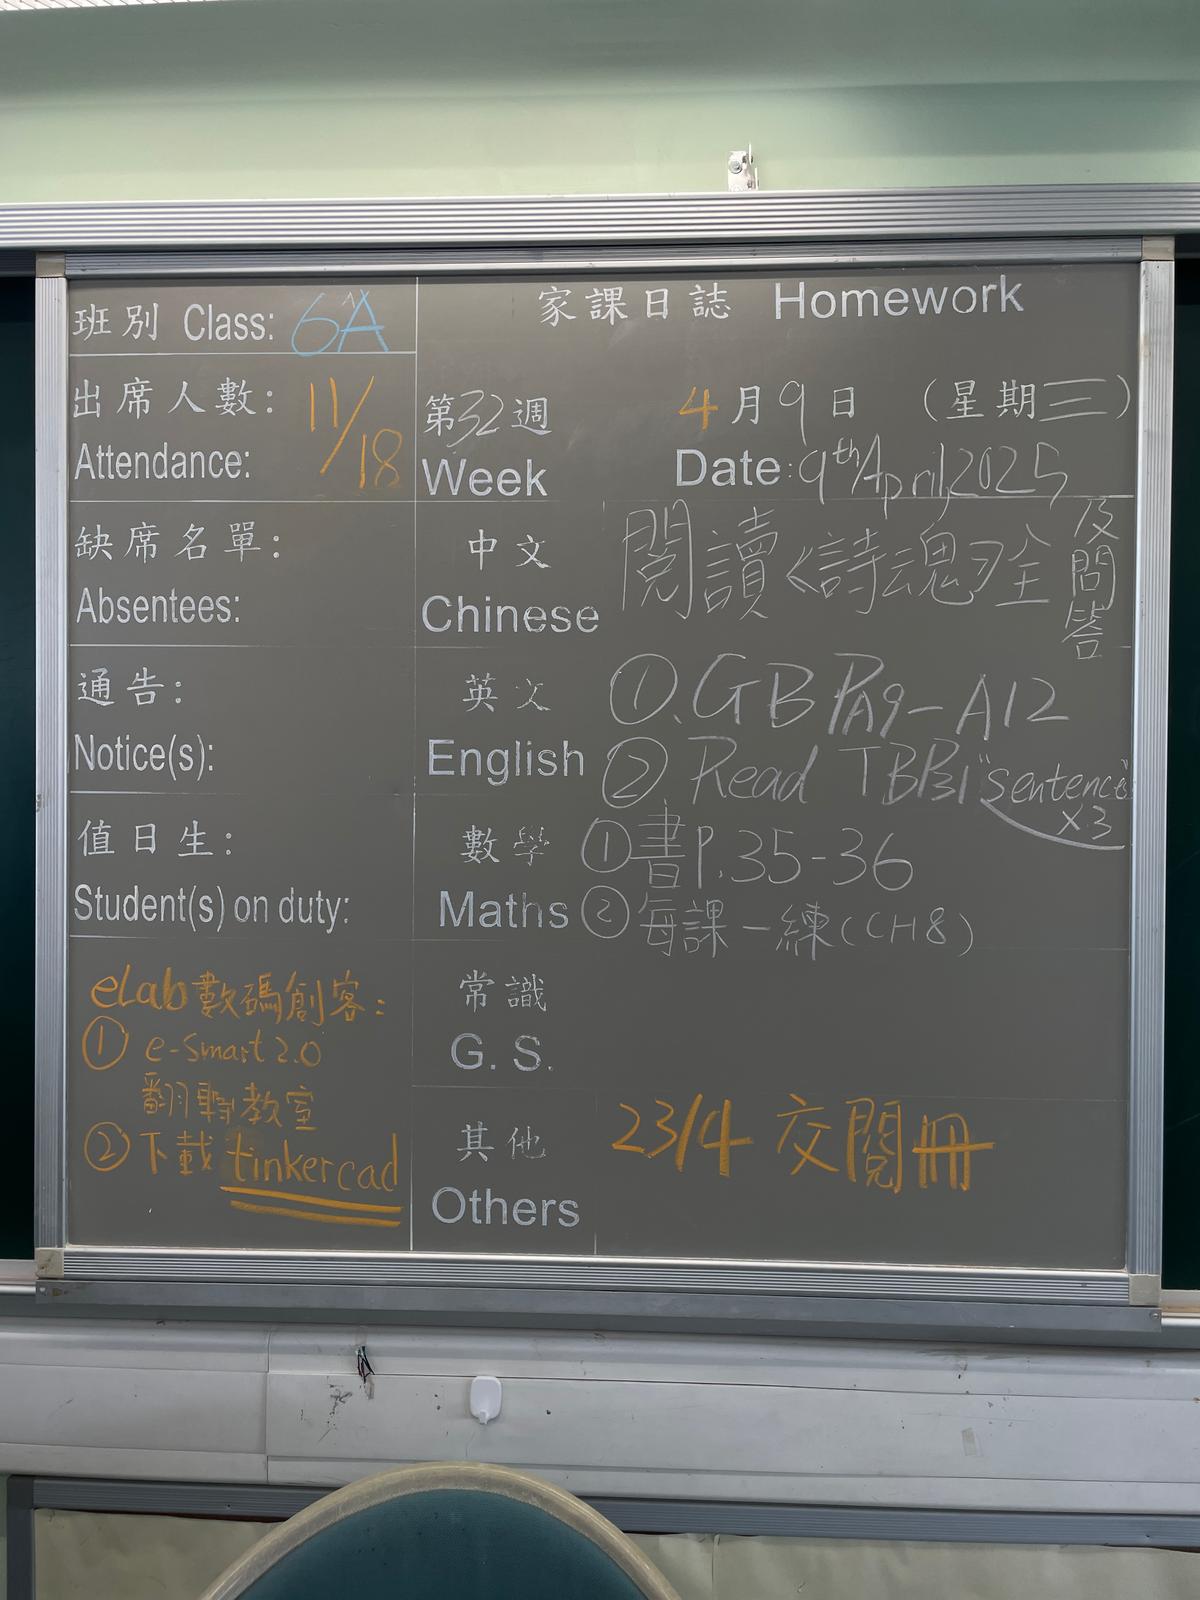 班別 Class: 6A
出席人數:
Attendance: 11/18
缺席名單:
Absentees:
通告:
Notice(s):
值日生:
Student(s) on duty:
eLab 數碼創客:
① e-Smart 2.0
翻轉教室
② 下載 tinkercad
家課日誌 Homework
第32週 4月9日 (星期三)
Week Date: 9th April, 2025
中文 閱讀《詩魂》全及問答
Chinese
英文 ①. GB PA9-A12
English ② Read TB P.31 "sentences" ×3
數學 ①書P.35-36
Maths ②每課一練(CH8)
常識
G. S.
其他 23/4 交閱冊
Others